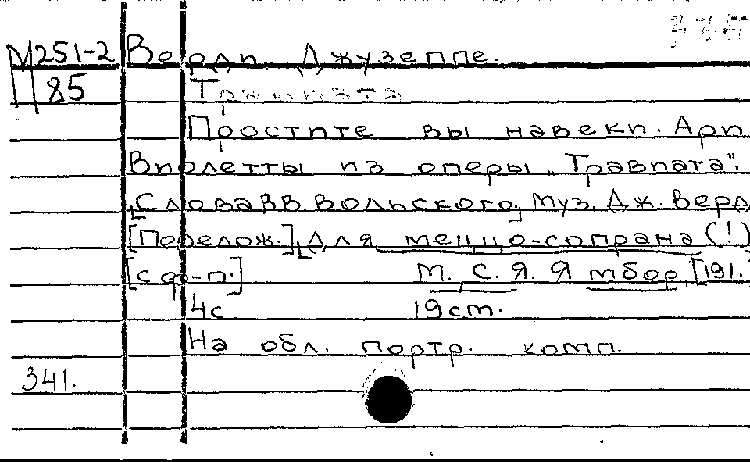 М251-2 Верди Джузеппе.
85 Травиата
Простите вы навеки. Ари
Виолетты из оперы „Травиата".
[Слова В. В. Вольского, муз. Дж. Верд
[Перелож.] для меццо-сопрана (!)
[с ф-п.] М. С. Я. Ямбор, [191.
4с 19см.
На обл. портр. комп.
341.